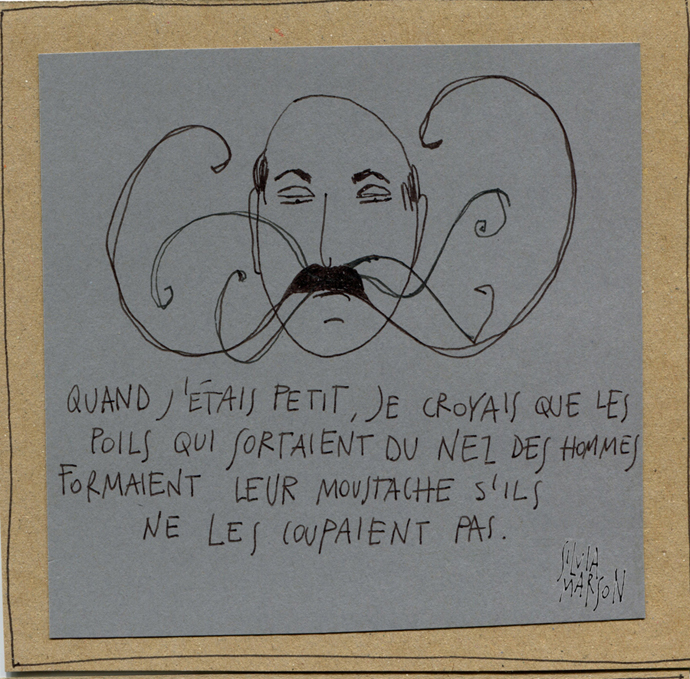 QUAND J'ÉTAIS PETIT, JE CROYAIS QUE LES
POILS QUI SORTAIENT DU NEZ DES HOMMES
FORMAIENT LEUR MOUSTACHE S'ILS
NE LES COUPAIENT PAS.
SILVIA
MARSON